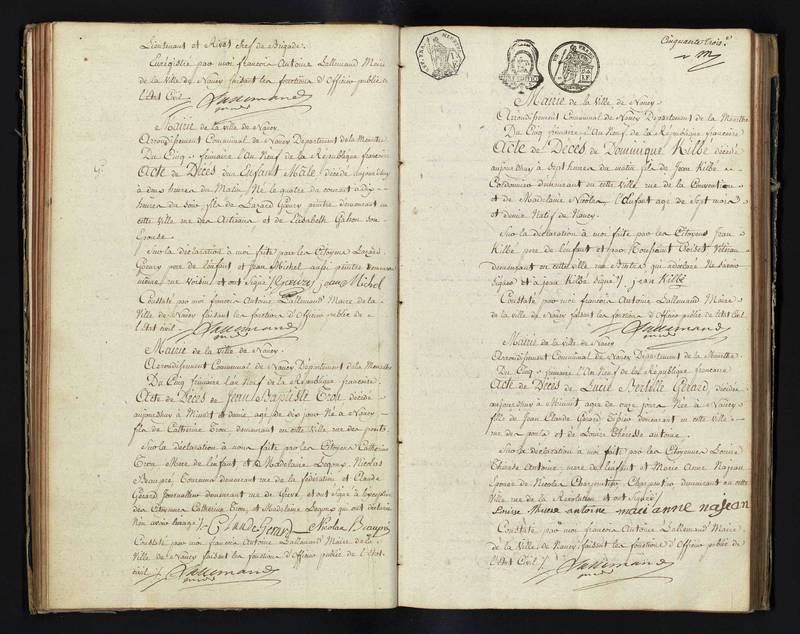 Lieutenant et Rivat chef de Brigade.
Enrégistré par moi françois Antoine Lallemand Maire
de la Ville de Nancy faisant les fonctions d'Officier public de
l'Etat Civil
Lallemand
maire
Mairie de la ville de Nancy.
Arrondissement Communal de Nancy Département de la Meurthe
Du Cinq frimaire l'an Neuf de la République francaise
Acte de Décès d'un Enfant Male décédé aujourdhuy
à deux heures du Matin, Né le quatre du courant à dix
heures du soir fils de Lazard peintre demeurant en
cette Ville rue des et de Elisabeth son
Epouse.
Sur la déclaration à moi faite par les Citoyens Lazard
pere de l'enfant et Jean Michel aussi peintre demeurant
même rue et ont Signé jean Michel
Constaté par moi françois Antoine Lallemand Maire de la
Ville de Nancy faisant les fonctions d'Officier public de
l'Etat civil
Lallemand
maire
Mairie de la ville de Nancy.
Arrondissement Communal de Nancy Département de la Meurthe
Du Cinq frimaire l'an Neuf de la République francaise
Acte de Décès de Jean Baptiste Trou décédé
aujourdhuy à Minuit et demie, agé de dix jours Né à Nancy
fils de Catherine Trou demeurant en cette Ville rue des ponts
Sur la déclaration à nous faite par les Citoyens Catherine
Trou Mere de l'enfant et Madelaine Nicolas
Beaupré, Tourneur demeurant rue de la fédération et Claude
Gérard Journallier demeurant rue de et ont Signé à l'exception
des Citoyennes Catherine Trou, et Madelaine qui ont déclaré
Nen avoir l'usage Gerard Nicolas Beaupré
Constaté par moi françois Antoine Lallemand Maire de la
Ville de Nancy faisant les fonctions d'Officier public de l'Etat
civil
Lallemand
maire
Cinquante trois.
Mairie de la Ville de Nancy.
Arrondissement Communal de Nancy Département de la Meurthe
Du Cinq frimaire l'An Neuf de la République francaise
Acte de Décès de Dominique Kilbé décédé
aujourdhuy à Sept heures du matin fils de Jean Kilbé
Cordonnier demeurant en cette Ville rue de la Convention
et de Madelaine Nicolas l'enfant agé de Sept mois
et demie Natif de Nancy.
Sur la déclaration à moi faite par les Citoyens Jean
Kilbé pere de l'enfant et Toussaint Vétéran
demeurant en cette ville rue qui a déclaré Ne savoir
Signer et a jean Kilbé Signé jean Kilbé
Constaté par moi françois Antoine Lallemand Maire
de la ville de Nancy faisant les fonctions d'Officier public de l'Etat Civil
Lallemand
maire
Mairie de la ville de Nancy
Arrondissement Communal de Nancy Département de la Meurthe
Du Cinq frimaire l'An Neuf de la République francaise
Acte de Décès de Lucie Gérard, décédée
aujourdhuy à Minuit, agée de onze jours Née à Nancy
fille de Jean Claude Gérard demeurant en cette Ville
rue de et de Louise Thérèsse antoine.
Sur la déclaration à moi faite par les Citoyennes Louise
Thérèse Antoine mere de l'enfant et Marie Anne Najean
Epouse de Nicolas Charpentier demeurant en cette
Ville rue de la Révolution et ont Signé
Louise antoine marianne najean
Constaté par moi françois Antoine Lallemand Maire
de la Ville de Nancy faisant les fonctions d'Officier public de
l'Etat Civil
Lallemand
maire